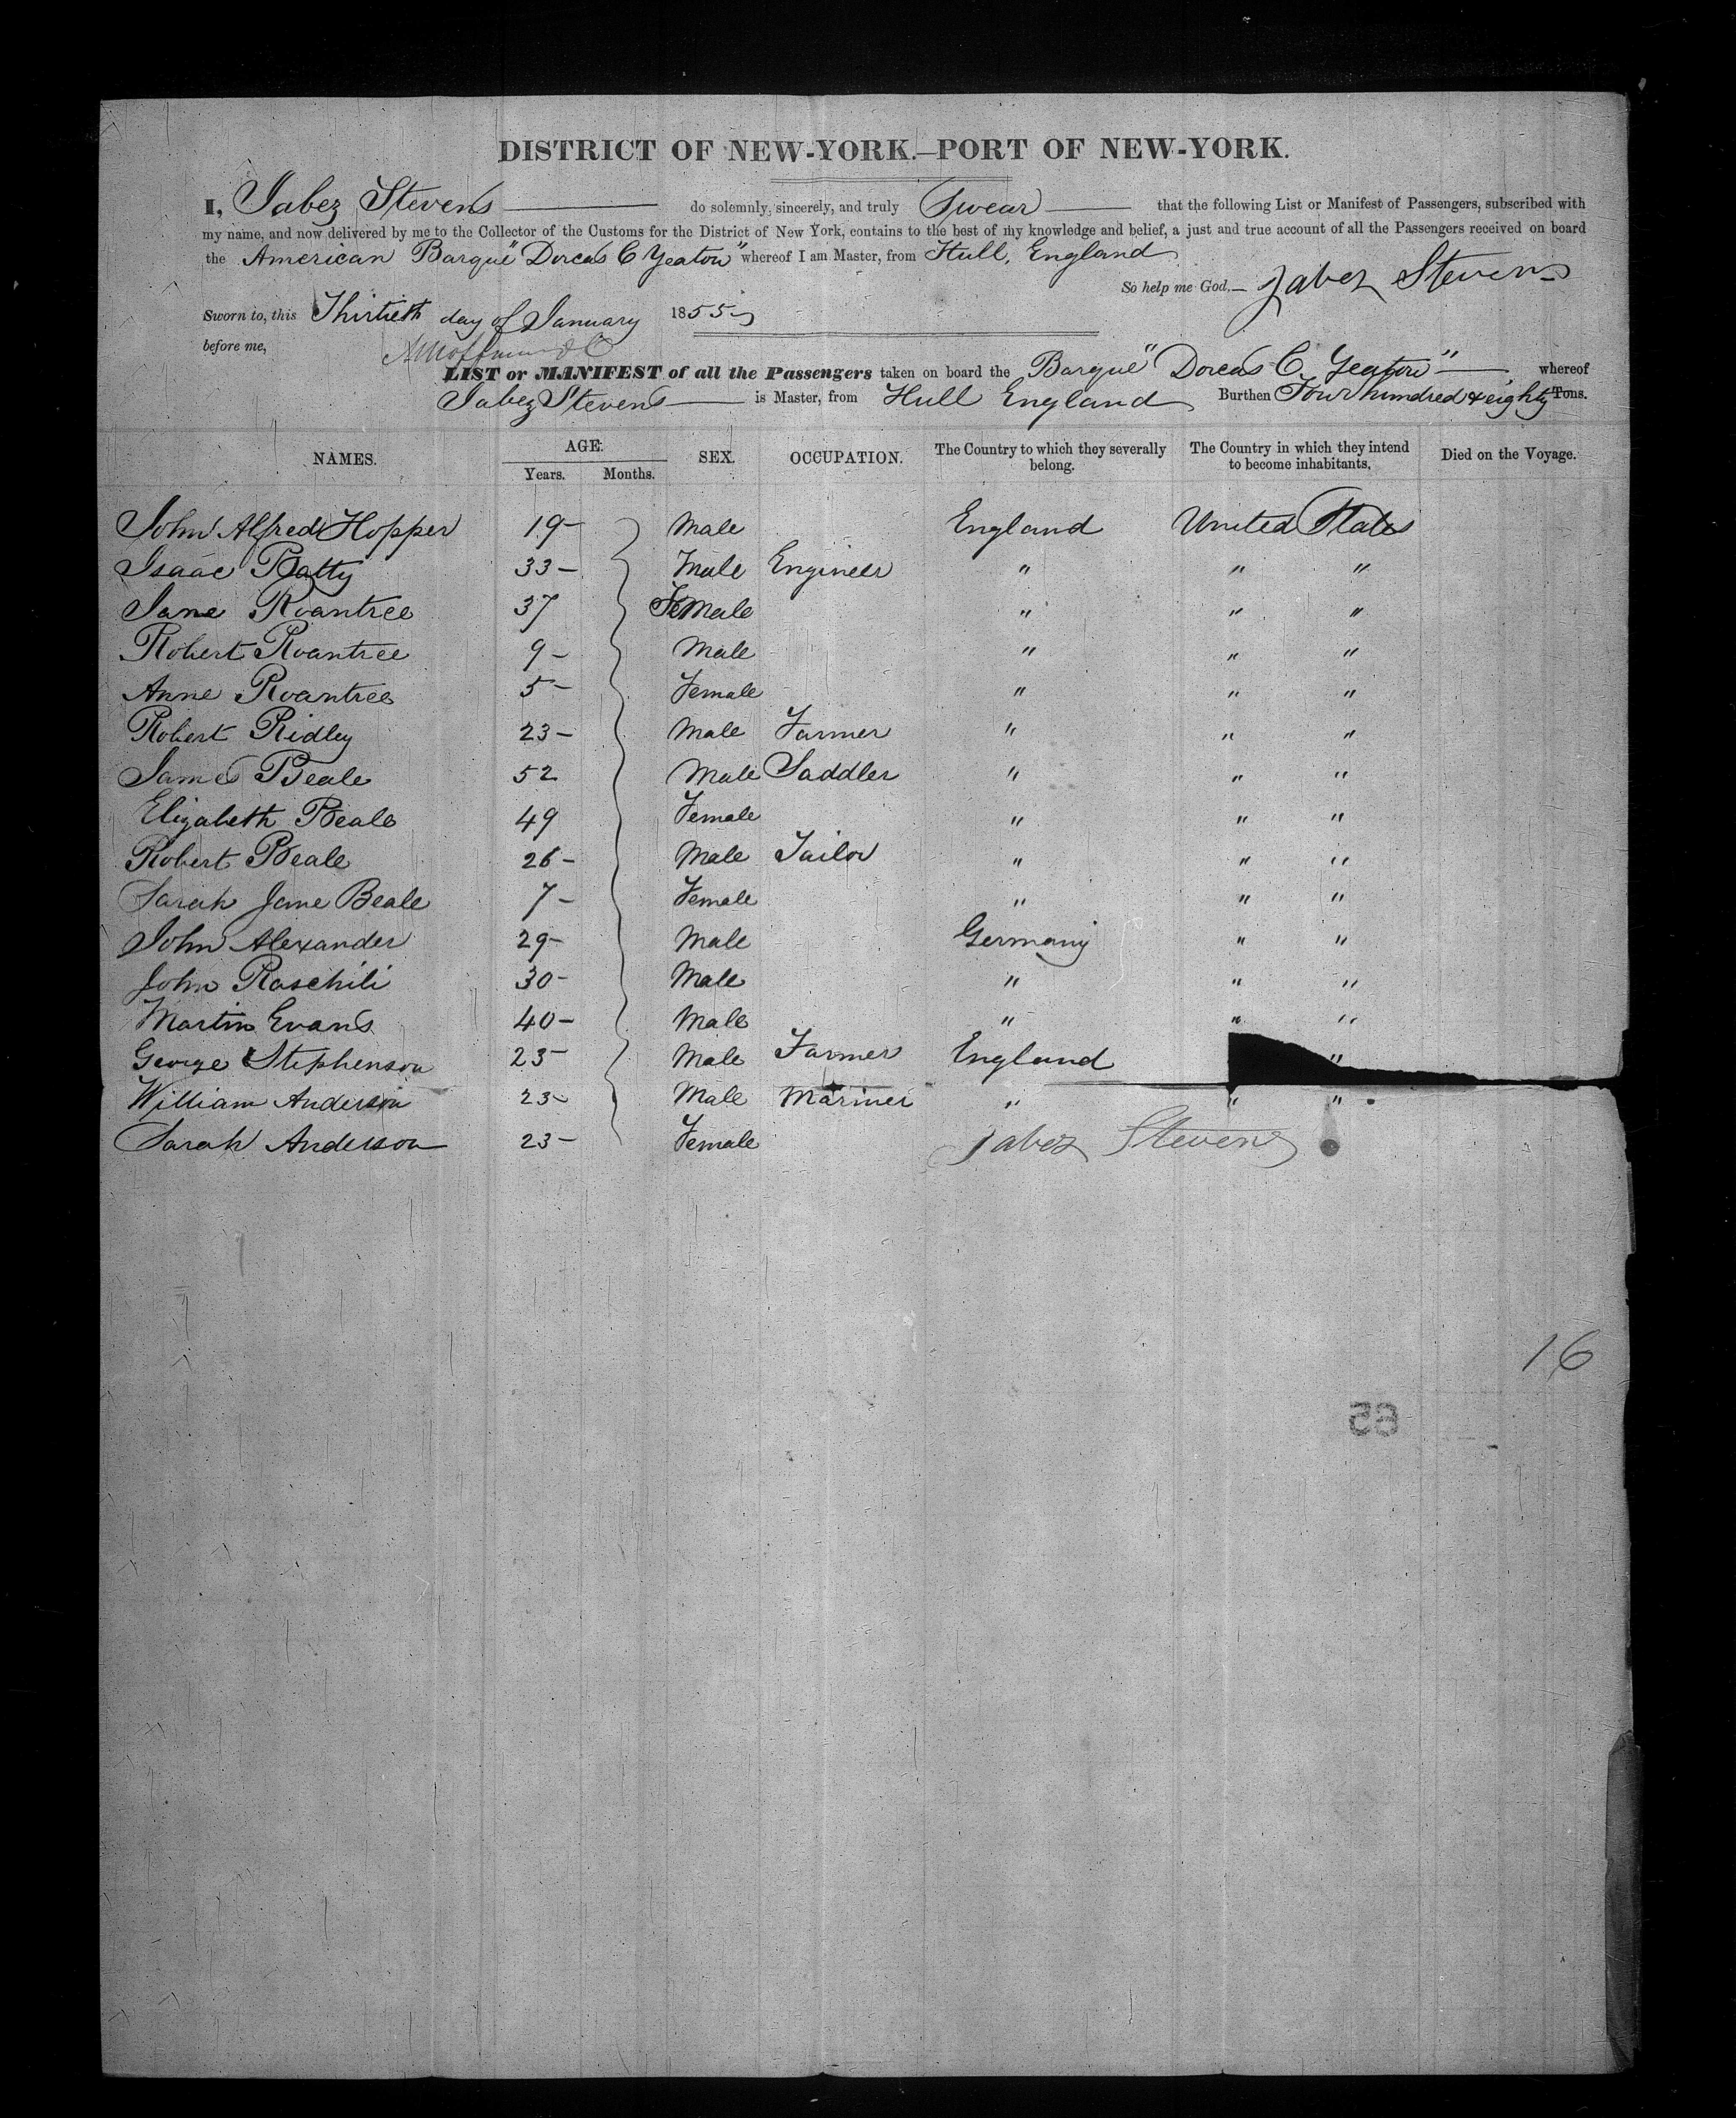 DISTRICT OF NEW-YORK.—PORT OF NEW-YORK.
I, Jabez Stevens do solemnly, sincerely, and truly Swear that the following List or Manifest of Passengers, subscribed with
my name, and now delivered by me to the Collector of the Customs for the District of New York, contains to the best of my knowledge and belief, a just and true account of all the Passengers received on board
the American Barque "Dorcas C Yeaton" whereof I am Master, from Hull, England
So help me God,— Jabez Stevens
Sworn to, this Thirtieth day of January 1855
before me,
LIST or MANIFEST of all the Passengers taken on board the Barque "Dorcas C. Yeaton" whereof
Jabez Stevens is Master, from Hull England Burthen Four hundred & eighty Tons.
NAMES. AGE. SEX. OCCUPATION. The Country to which they severally belong. The Country in which they intend to become inhabitants. Died on the Voyage.
Years. Months.
John Alfred Hopper 19- Male England United States
Isaac Batty 33- Male Engineer " " "
Jane Roantree 37 Female " " "
Robert Roantree 9- Male " " "
Anne Roantree 5- Female " " "
Robert Ridley 23- Male Farmer " " "
James Beale 52 Male Saddler " " "
Elizabeth Beale 49 Female " " "
Robert Beale 26- Male Tailor " " "
Sarah Jane Beale 7- Female " " "
John Alexander 29- Male Germany " "
John Raschili 30- Male " " "
Martin Evans 40- Male " " "
George Stephenson 23- Male Farmer England "
William Anderson 23- Male Mariner " " "
Sarah Anderson 23- Female
Jabez Stevens
16